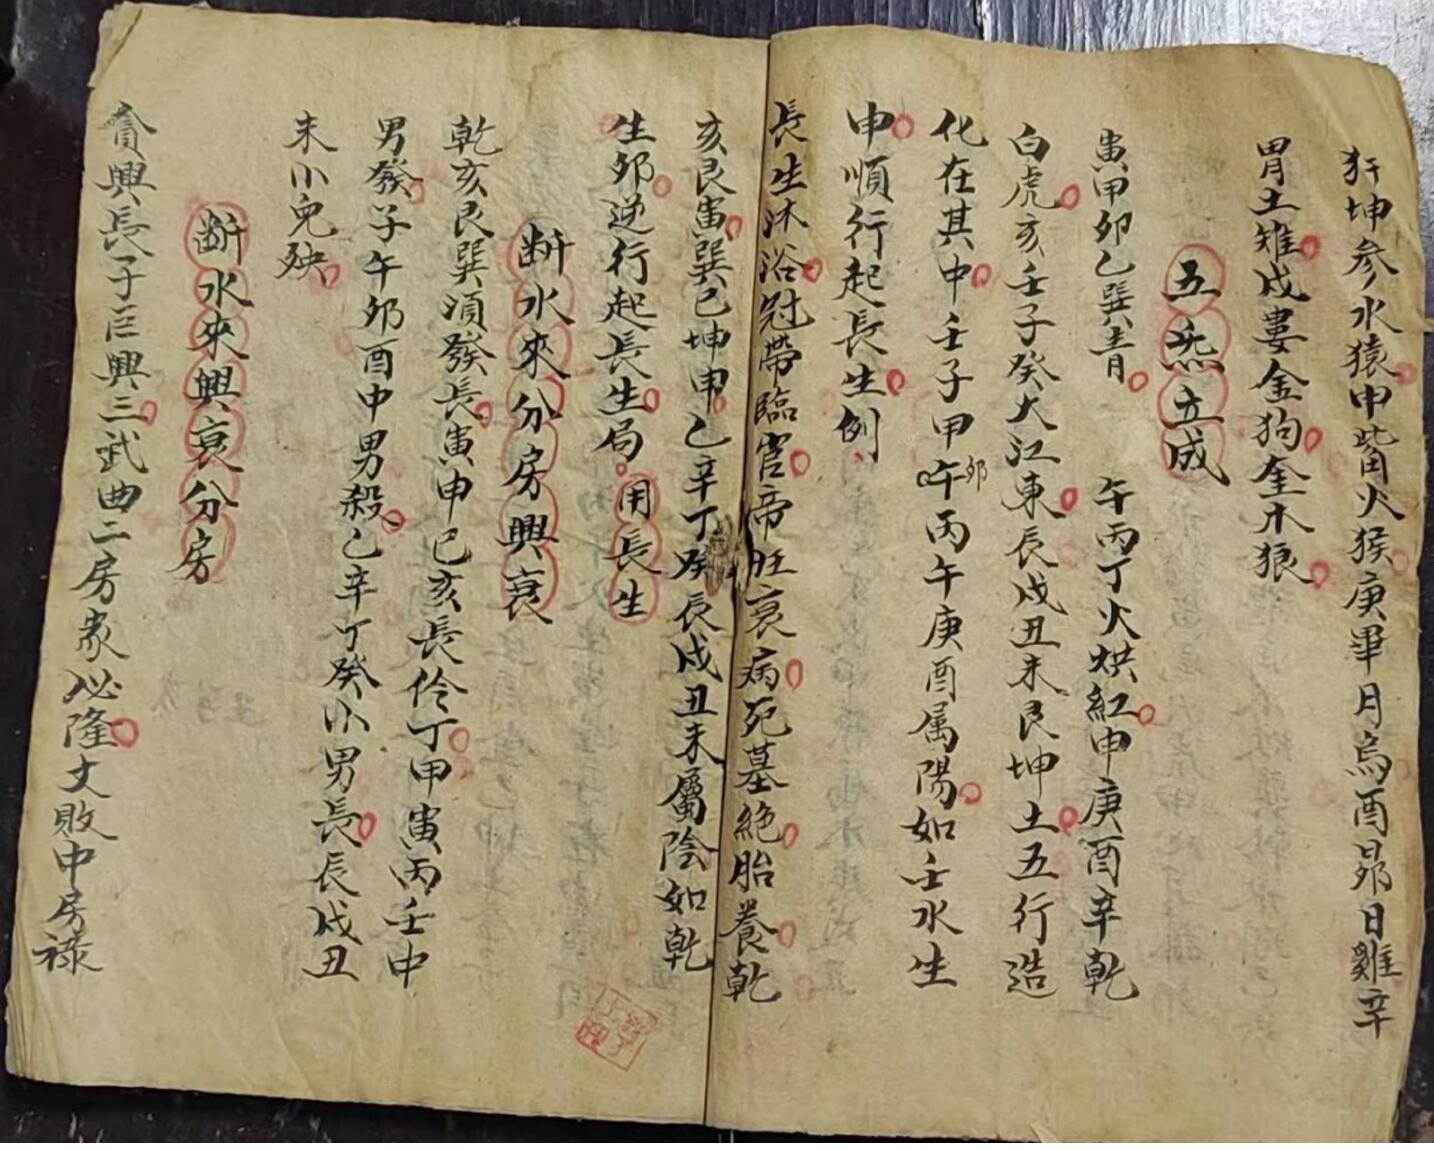 犴坤参水猿申觜火猴庚畢月烏酉昴日雞辛
胃土雉戌婁金狗奎木狼
五炁立成
寅甲卯乙巽青 午丙丁火烘紅申庚酉辛乾
白虎亥壬子癸大江東辰戌丑未艮坤土五行造
化在其中壬子甲午卯丙午庚酉属陽如壬水生
申順行起長生例
長生沐浴冠帶臨官帝旺衰病死墓絕胎養乾
亥艮寅巽巳坤申乙辛丁癸辰戌丑未屬陰如乾
生卯逆行起長生局用長生
断水來分房興衰
乾亥艮巽須發長寅申巳亥長伶丁甲寅丙壬中
男發子午卯酉中男殺乙辛丁癸小男長辰戌丑
未小兒殃
断水來興衰分房
貪興長子巨興三武曲二房家必隆文敗中房祿